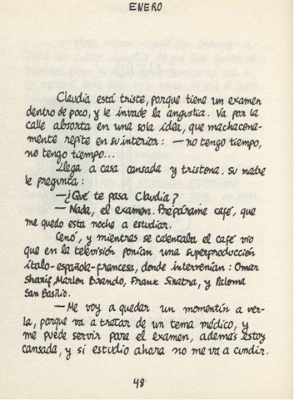 ENERO
Claudia está triste, porque tiene un examen
dentro de poco, y le invade la angustia. Va por la
calle absorta en una sola idea, que machacona-
mente repite en su interior: — no tengo tiempo,
no tengo tiempo...
Llega a casa cansada y tristona. Su madre
le pregunta:
—¿Qué te pasa Claudia?
— Nada, el examen. Prepárame café, que
me quedo esta noche a estudiar.
Cenó, y mientras se calentaba el café vio
que en la televisión ponían una superproducción
ítalo-española-francesa, donde intervenían: Omar
Sharif, Marlon Brando, Frank Sinatra, y Paloma
San Basilio.
— Me voy a quedar un momentín a ver-
la, porque va a tratar de un tema médico, y
me puede servir para el examen, además estoy
cansada, y si estudio ahora no me va a cundir.
48